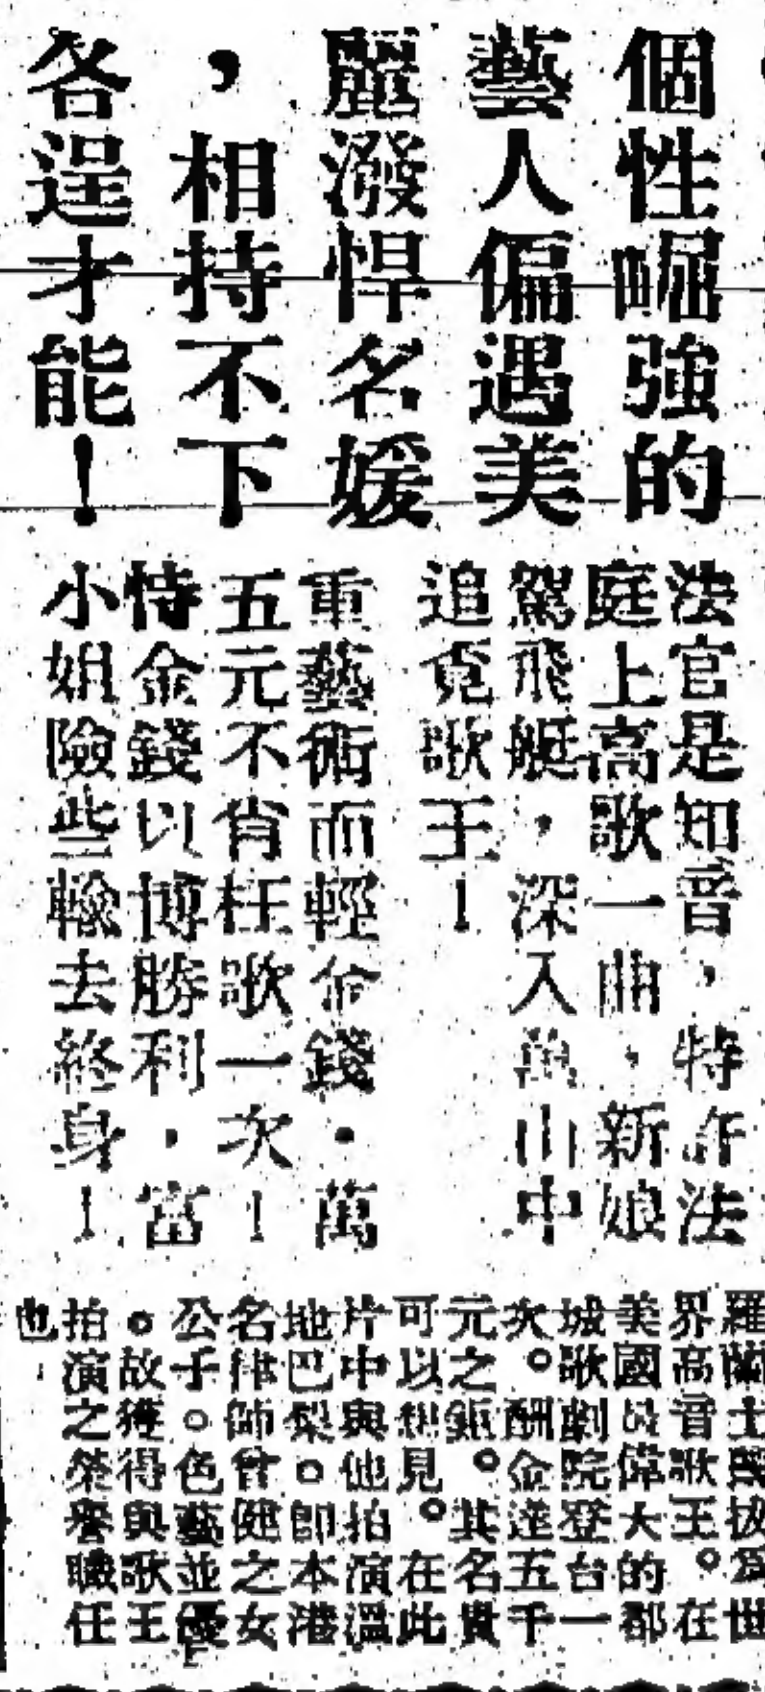 個性崛強的
藝人偏遇美
麗潑悍名媛
，相持不下
各逞才能！
法官是知音，特許法
庭上高歌一曲，新娘
駕飛艇，深入萬山中
追覓歌王！
重藝術而輕金錢，萬
五元不肯枉歌一次！
恃金錢以博勝利，富
小姐險些輸去終身！
羅蘭士 拔為世
界高音歌王。在
美國最偉大的都
城歌劇院登台一
次。酬金達五千
元之鉅。其名貴
可以想見。在此
片中與他拍演溫
地巴梨。即本港
名律師曾健之女
公子。色藝並優
。故獲得與歌王
拍演之榮譽職任
也，